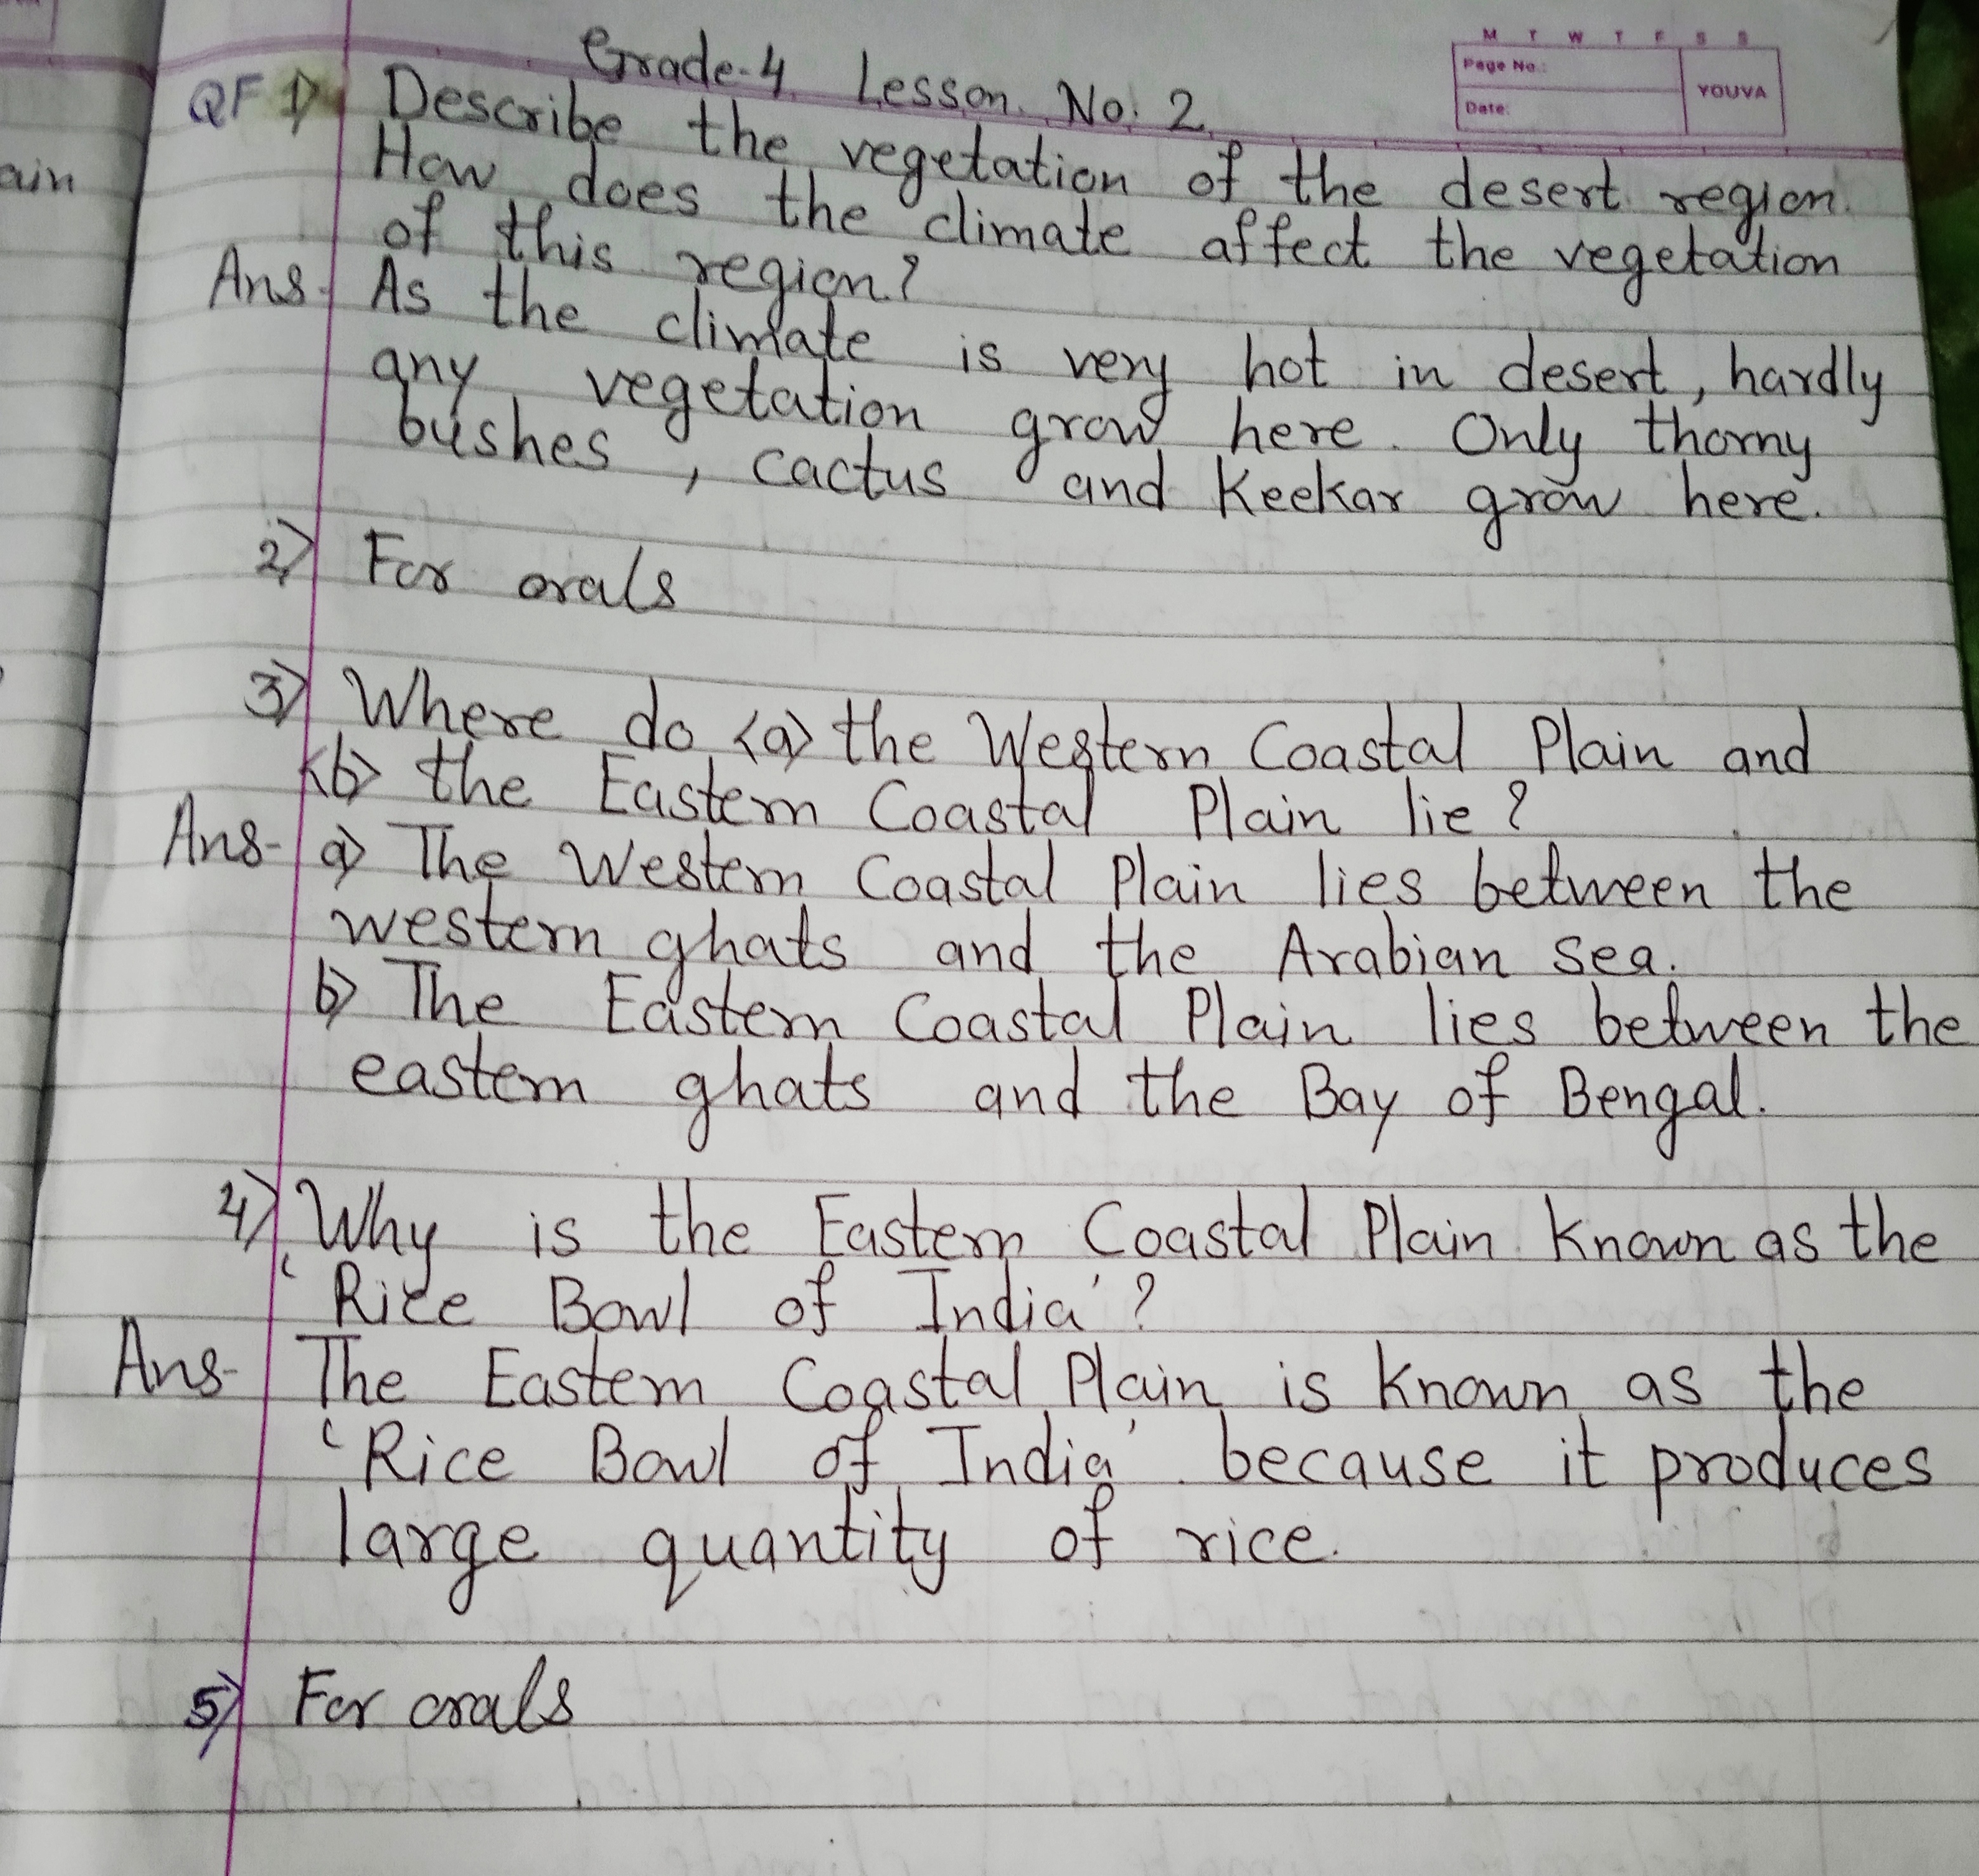 ain
M T W T F S S
Page No.:
Date:
YOUVA
Grade-4 Lesson No: 2
QF 1) Describe the vegetation of the desert region.
How does the climate affect the vegetation
of this region?
Ans- As the climate is very hot in desert, hardly
any vegetation grow here. Only thorny
bushes, cactus and Keekar grow here.
2) For orals
3) Where do <a> the Western Coastal Plain and
<b> the Eastern Coastal Plain lie?
Ans- a) The Western Coastal Plain lies between the
western ghats and the Arabian Sea.
b) The Eastern Coastal Plain lies between the
eastern ghats and the Bay of Bengal.
4) Why is the Eastern Coastal Plain Known as the
'Rice Bowl of India'?
Ans- The Eastern Coastal Plain is Known as the
'Rice Bowl of India' because it produces
large quantity of rice.
5) For orals